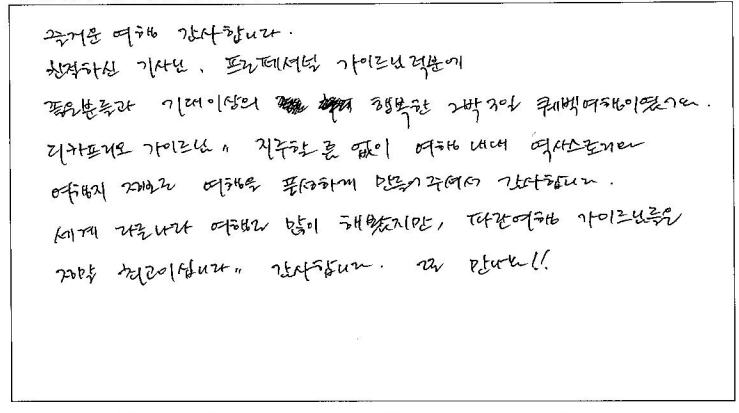 즐거운 여행 감사합니다.
친절하신 기사님, 프로페셔널 가이드님 덕분에
좋은분들과 기대이상의 행복한 2박 3일 퀘벡여행이였어요.
디카프리오 가이드님" 지루할 틈 없이 여행 내내 역사스토리와
여행지 정보로 여행을 풍성하게 만들어주셔서 감사합니다.
세계 다른나라 여행도 많이 해봤지만, 파란여행 가이드님들은
정말 최고이십니다" 감사합니다. 또 만나요!!